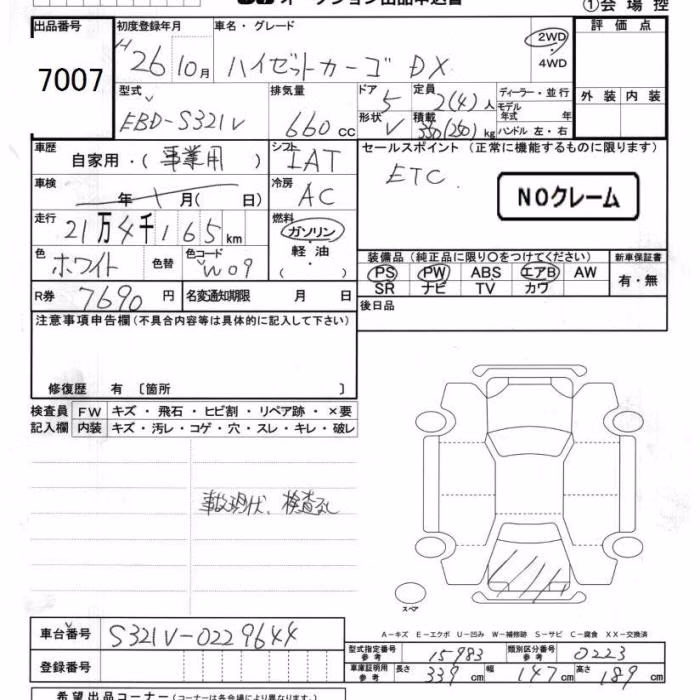 ①会場控
出品番号
7007
初度登録年月
H26 10月
車名・グレード
ハイゼットカーゴ DX
2WD
4WD
評価点
外装 内装
型式
EBD-S321V
排気量
660cc
ドア
5
形状
V
定員
2(4)人
積載
350(250)kg
ディーラー・並行
モデル年式 年
ハンドル 左・右
車歴
自家用・(事業用)
シフト
IAT
セールスポイント (正常に機能するものに限ります)
ETC
NOクレーム
車検
年 月( 日)
冷房
AC
走行
21万4千165km
燃料
ガソリン・
軽油・
( )
色
ホワイト
色替
色コード
W09
装備品 (純正品に限り○をつけてください)
新車保証書
PS PW ABS エアB AW
SR ナビ TV カワ
有・無
R券
7690円
名変通知期限 月 日
後日品
注意事項申告欄(不具合内容等は具体的に記入して下さい)
修復歴 有 〔箇所 〕
検査員記入欄
FW キズ・飛石・ヒビ割・リペア跡・×要
内装 キズ・汚レ・コゲ・穴・スレ・キレ・破レ
事故現状、検査なし
スペア
A-キズ E-エクボ U-凹み W-補修跡 S-サビ C-腐食 XX-交換済
車台番号
S321V-0229644
登録番号
型式指定番号 参考
15983
類別区分番号 参考
0223
車庫証明用 参考
長さ 339cm 幅 147cm 高さ 189cm
希望出品コーナー(コーナーは各会場により異なります。)